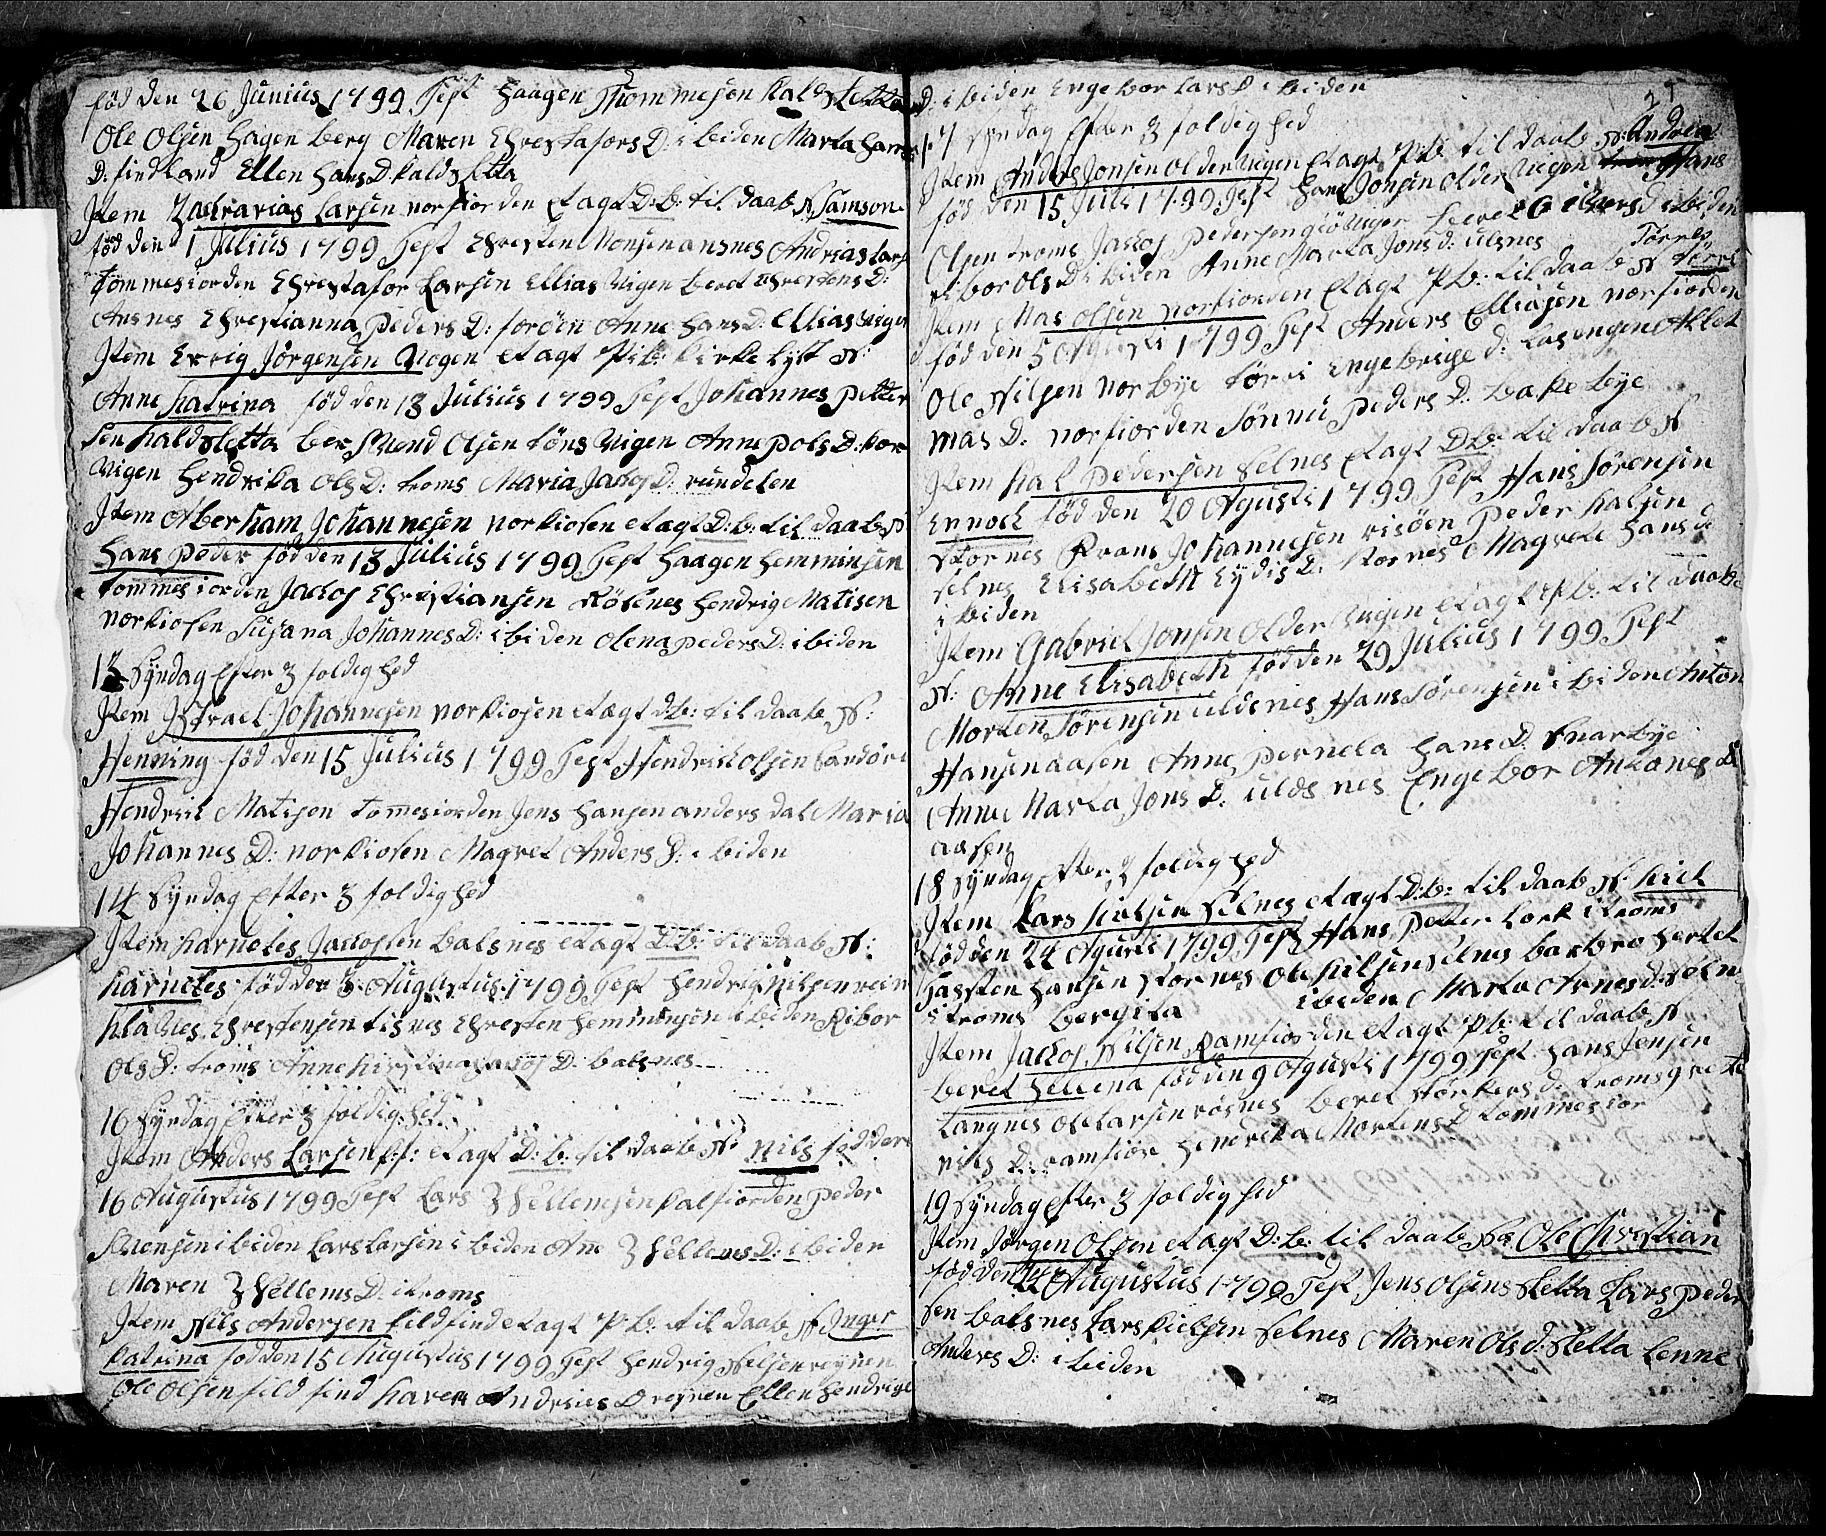 fød den 26 Junius 1799 Test Haagen Thommesen Kaldsletta
Ole Olsen Hagen berg Maren Chrestafors D: ibiden Marta Hans
D: findland Ellen Hans D: Kaldsletta
Item Zachrarias Larsen norfiorden Ægt D: b: til daab N Samson
fød den 1 Julius 1799 Test Chresten Monsen ansnes Andrias Lars
Tømmesiorden Chrestafor Larsen Ellias Vigen beret Chrestens D:
Ansnes Chrestianna Peders D: forøen Anne Hans D: Ellias Vigen
Item Errig Jørgensen Vogen ektagt P: b: Kirke lyst N:
Anne Katrina fød den 13 Julius 1799 Test Johannes Petter
sen Kaldsletta ber Svend Olsen tøns Vigen Anne Pols D: kor
Vigen Hendrika Ols D: troms Maria Jacos D: rundelen
Item Aberham Johannesen norkiosen ektagt D: b: til daab N
Hans Peder fød den 13 Julius 1799 Test Haagen Hemminsen
Tommesiorden Jacos Christiansen Kobbnes Hendrig Matisen
norkiosen Susana Johannes D: ibiden Olena Peders D: ibiden
13 Syndag Efter 3 foldighed
Item Isrrael Johannesen norkiosen ektagt d: b: til daab N:
Henning fød den 15 Julius 1799 Test Hendrick Olsen Sandøre
Hendrik Matisen tomesiorden Jens Hansen anders dal Maria
Johannes D: norkiosen Magret Anders D: ibiden
14 Syndag Efter 3 foldighed
Item Karneles Jacossen balsnes ektagt D: b: til daab N:
Karneles fød den 3 Augustus 1799 Test Hendrig Nilsen rein
Klaves Chrestensen tisnes Chresten Hemminsen ibiden Ribor
Ols D: troms Anne Kirstina Jacos D: balsnes
16 Syndag Efter 3 foldighed
Item Anders Larsen ektagt D: b: til daab N: Nils fød den
16 Augustus 1799 Test Lars Zhellemsen kalfiorden Peder
Simensen ibiden Lars Larsen ibiden Ane Zhellems D: ibiden
Maren Zhellems D: itroms
Item Nils Andersen fildfind ektagt P: b: til daab N Inger
Katrina fød den 15 Augustus 1799 Test Hendrig Nelsen reynen
Ole Olsen fild find Karen Andreies D reynen Ellen Hendrigs
D: ibiden Engebor Lars D ibiden
25
17 Syndag Efter 3 foldighed
Item Anders Jonsen Older Vigen ektagt P: b: til daab N: Andrea
fød den 15 Juli 1799 Test Hans Jonsen Older Vigen Hans
Olsen troms Jacos Pedersen beret Eilers D ibiden
ribor Ols D: ibiden Anne Marta Jons D: ulsnes Torres
Item Mas Olsen norfiorden Ektagt P: b: til daab N Torre
fød den 5 Agusti 1799 Test Anders Elliasen norfiorden
Ole Nilsen norbye Torri Engebrigt d: Lasengen Allet
mas D: norfiorden Sønnei Peders D: bakebye
Item Kal Pedersen Selnes Ektagt D: b: til daab N
Ennock fød den 20 Agusti 1799 Test Hans Sørensen
Stornes Frans Johannesen risøen Peder Kalsen
selnes Elisabeth Eydis D: Stornes Magrete Hans d
ibiden
Item Gabriel Jonsen Older Vigen ektagt P: b: til daab
N: Anne Elisabeth fød den 29 Julius 1799 Test
Morten Sørensen uldsnes Hans Sørensen ibiden Anton
Hansen aasen Anne Pernela Hans D: Snarbye
Anne Marta Jons D: uldsnes Engebor Antones D
aasen
18 Syndag Efter 3 foldighed
Item Lars Kielsen Selnes ektagt D: b: til daab N: Kiel
fød den 24 Agusti 1799 Test Hans Petter Lork itroms
Tarsten Hansen Stornes Ole Kielsen Selnes barbro Hertel
itroms bergita ibiden Marta Arnes d: Seln
Item Jacos Nilsen Ramfiorden ektagt P: b: til daab N
beret Hellena fød den 9 Agusti 1799 Test Hans Jensen
Tangnes Ole Larsen røsnes beret Størkers d: troms grete
Nils D: ramfior Hendrika Mortens D tommesior
19 Syndag Efter 3 foldighed
Item Jørgen Olsen ektagt D: b: til daab N: Ole Christian
fød den 24 Augustus 1799 Test Jens Olsen Sletta Lars Peder
sen balsnes Lars Kielsen Selnes Maren Ols d: Sletta Lenne
Anders D: ibiden